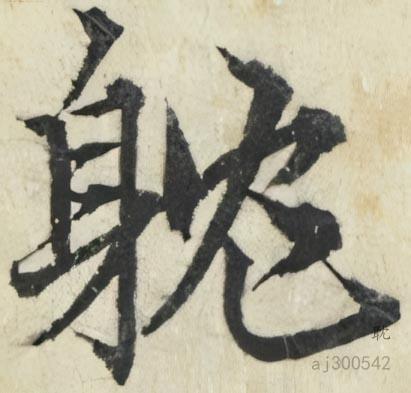 躭
耽
aj300542